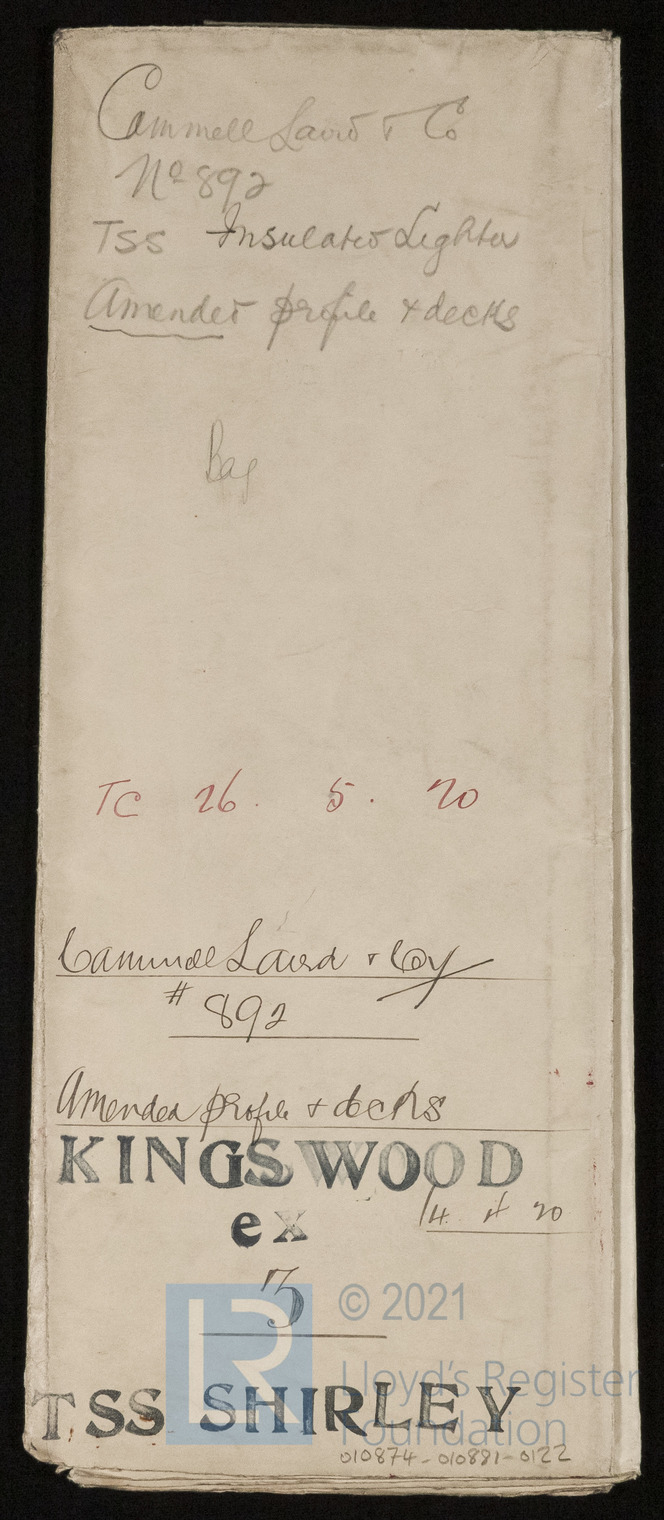 Cammell Laird & Co
No 892
TSS Insulated Lighter
Amended profile & decks
Bag
TC 26. 5. 20
Cammell Laird & Coy
# 892
Amended profile & decks
KINGSWOOD
14 4 20
ex
3
© 2021
Lloyd's Register
Foundation
TSS SHIRLEY
010874-010881-0122